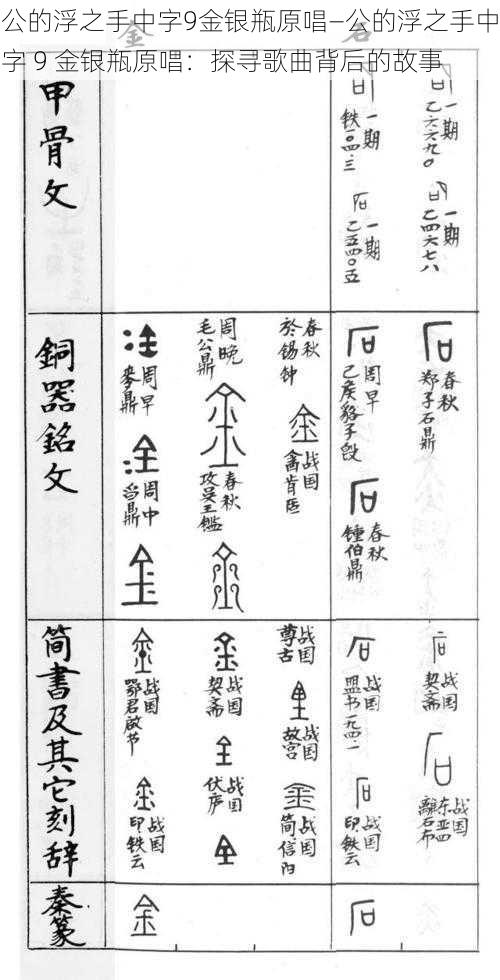 公的浮之手中字9金银瓶原唱—公的浮之手中
字 9 金银瓶原唱：探寻歌曲背后的故事
金
石
甲骨文
一期
乙六六九〇
一期
乙四六七八
一期
铁一〇四·三
一期
乙五四〇五
銅器銘文
周早
麥鼎
周中
舀鼎
周晚
毛公鼎
春秋
攻吴王鑑
春秋
於锡钟
战国
禽肯匜
周早
己侯貉子殷
春秋
鍾伯鼎
春秋
郑子石鼎
简書及其它刻辞
战国
鄂君啟节
战国
印铁云
战国
契斋
战国
伏庐
战国
尊古
战国
故宫
战国
简信阳
战国
盟书一九四·一
战国
印铁云
战国
契斋
战国
东亚四
離石布
秦篆
金
石